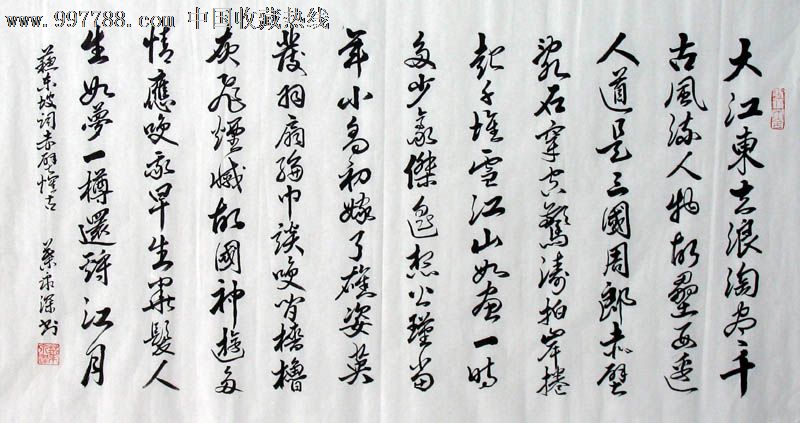 www.997788.com 中国收藏热线
大江東去浪淘盡千
古風流人物故壘西邊
人道是三國周郎赤壁
亂石穿空驚濤拍岸捲
起千堆雪江山如畫一時
多少豪傑遙想公瑾當
年小喬初嫁了雄姿英
發羽扇綸巾談笑間檣櫓
灰飛煙滅故國神遊多
情應笑我早生華髮人
生如夢一樽還酹江月
蘇東坡詞赤壁懷古